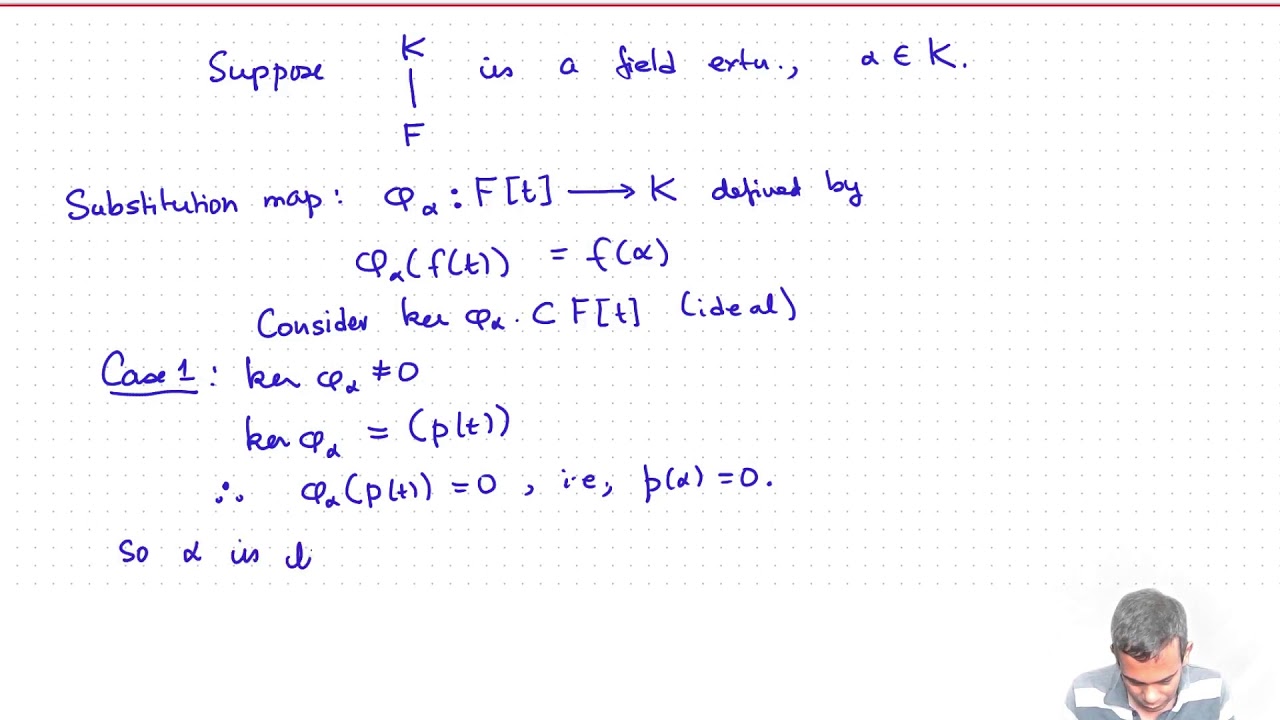 Suppose K | F is a field extn., α ∈ K.
Substitution map: φ_α : F[t] ⟶ K defined by
φ_α(f(t)) = f(α)
Consider ker φ_α. ⊂ F[t] (ideal)
Case 1: ker φ_α ≠ 0
ker φ_α = (p(t))
∴ φ_α(p(t)) = 0, i.e., p(α) = 0.
So α is